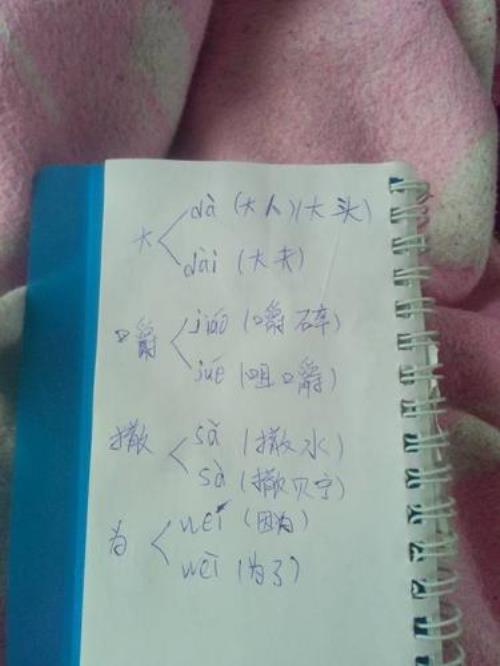 大 dà (大人)(大头)
dài (大夫)
嚼 jiáo (嚼碎)
jué (咀嚼)
撒 sǎ (撒水)
sà (撒贝宁)
为 (因为)
wèi (为了)